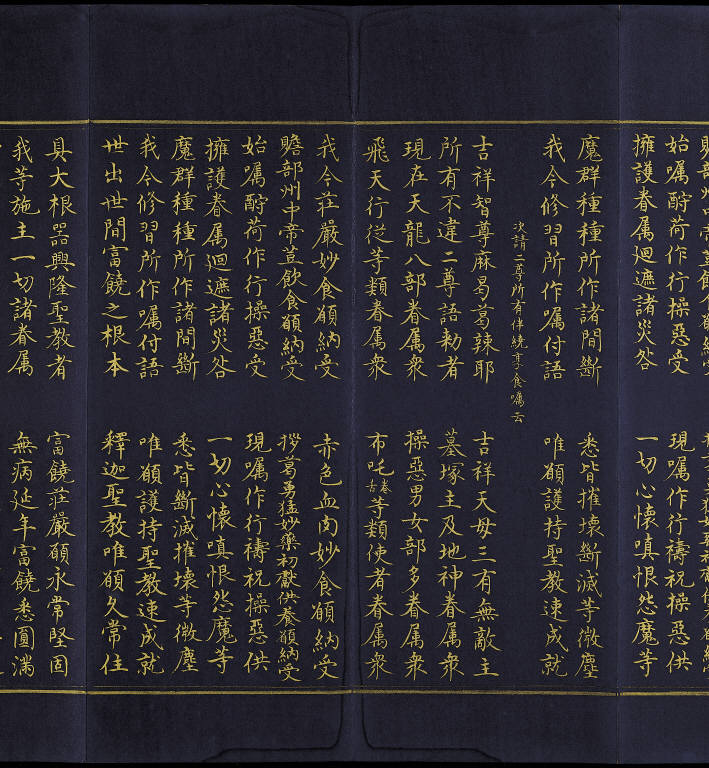 擁護眷属迴遮諸災咎 一切心懷嗔恨怨魔等
魔群種種所作諸間斷 悉皆摧壞斷滅等微塵
我今修習所作嘱付語 唯願護持聖教速成就
次請二尊所有伴繞享食嘱云
吉祥智尊麻曷葛辣耶 吉祥天母三有無敵主
所有不違二尊語勅者 墓塚主及地神眷属衆
現在天龍八部眷属衆 操惡男女部多眷属衆
飛天行從等類眷属衆 布吒卷古等類使者眷属衆
我今莊嚴妙食願納受 赤色血肉妙食願納受
贍部州中帝荳飲食願納受 拶葛勇猛妙藥初獻供養願納受
始嘱酧荷作行操惡受 現嘱作行禱祝操惡供
擁護眷属迴遮諸災咎 一切心懷嗔恨怨魔等
魔群種種所作諸間斷 悉皆斷滅摧壞等微塵
我今修習所作嘱付語 唯願護持聖教速成就
世出世間富饒之根本 釋迦聖教唯願久常住
具大根器興隆聖教者 富饒莊嚴願永常堅固
我等施主一切諸眷属 無病延年富饒悉圓滿